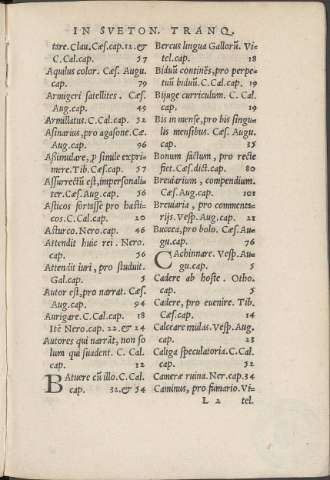 IN SVETON. TRANQ.
tare. Clau. Cæs. cap. 12. &
C. Cal. cap. 57
Aqualus color. Cæs. Augu.
cap. 79
Armigeri satellites. Cæs.
Aug. cap. 49
Armillatus. C. Cal. cap. 52
Asinarius, pro agasone. Cæ.
Aug. cap. 96
Assimulare, p simile expri-
mere. Tib. Cæs. cap. 57
Assurrectū est, impersonali-
ter. Cæs. Aug. cap. 56
Asticos fortasse pro bacti-
cos. C. Cal. cap. 20
Asturco. Nero. cap. 46
Attendit huic rei. Nero.
cap. 56
Attendit iuri, pro studuit.
Gal. cap. 5
Autor est, pro narrat. Cæs.
Aug. cap. 94
Aurigare. C. Cal. cap. 18
Itē Nero. cap. 22. & 24
Autores qui narrāt, non so
lum qui suadent. C. Cal.
cap. 12
BAtuere cū illo. C. Cal.
cap. 32. & 54
Bercus lingua Gallorū. Vi-
tel. cap. 18
Biduū continēs, pro perpe-
tuū biduū. C. Cal. cap. 19
Bijuge curriculum. C. Cal.
cap. 19
Bis in mense, pro bis singu-
lis mensibus. Cæs. Augu.
cap. 35
Bonum factum, pro recte
fiet. Cæs. dict. cap. 80
Breuiarium, compendium.
Cæs. Aug. cap. 101
Breuiaria, pro commenta-
rijs. Vesp. Aug. cap. 21
Buccea, pro bolo. Cæs. Au-
gu. cap. 76
CAchinnare. Vesp. Au-
gu. cap. 5
Cadere ab hoste. Otho.
cap. 5
Cadere, pro euenire. Tib.
Cæs. cap. 14
Calceare mulas. Vesp. Aug.
cap. 23
Caliga speculatoria. C. Cal.
cap. 52
Cameræ ruina. Ner. cap. 34
Caminus, pro fumario. Vi-
L 2 tel.